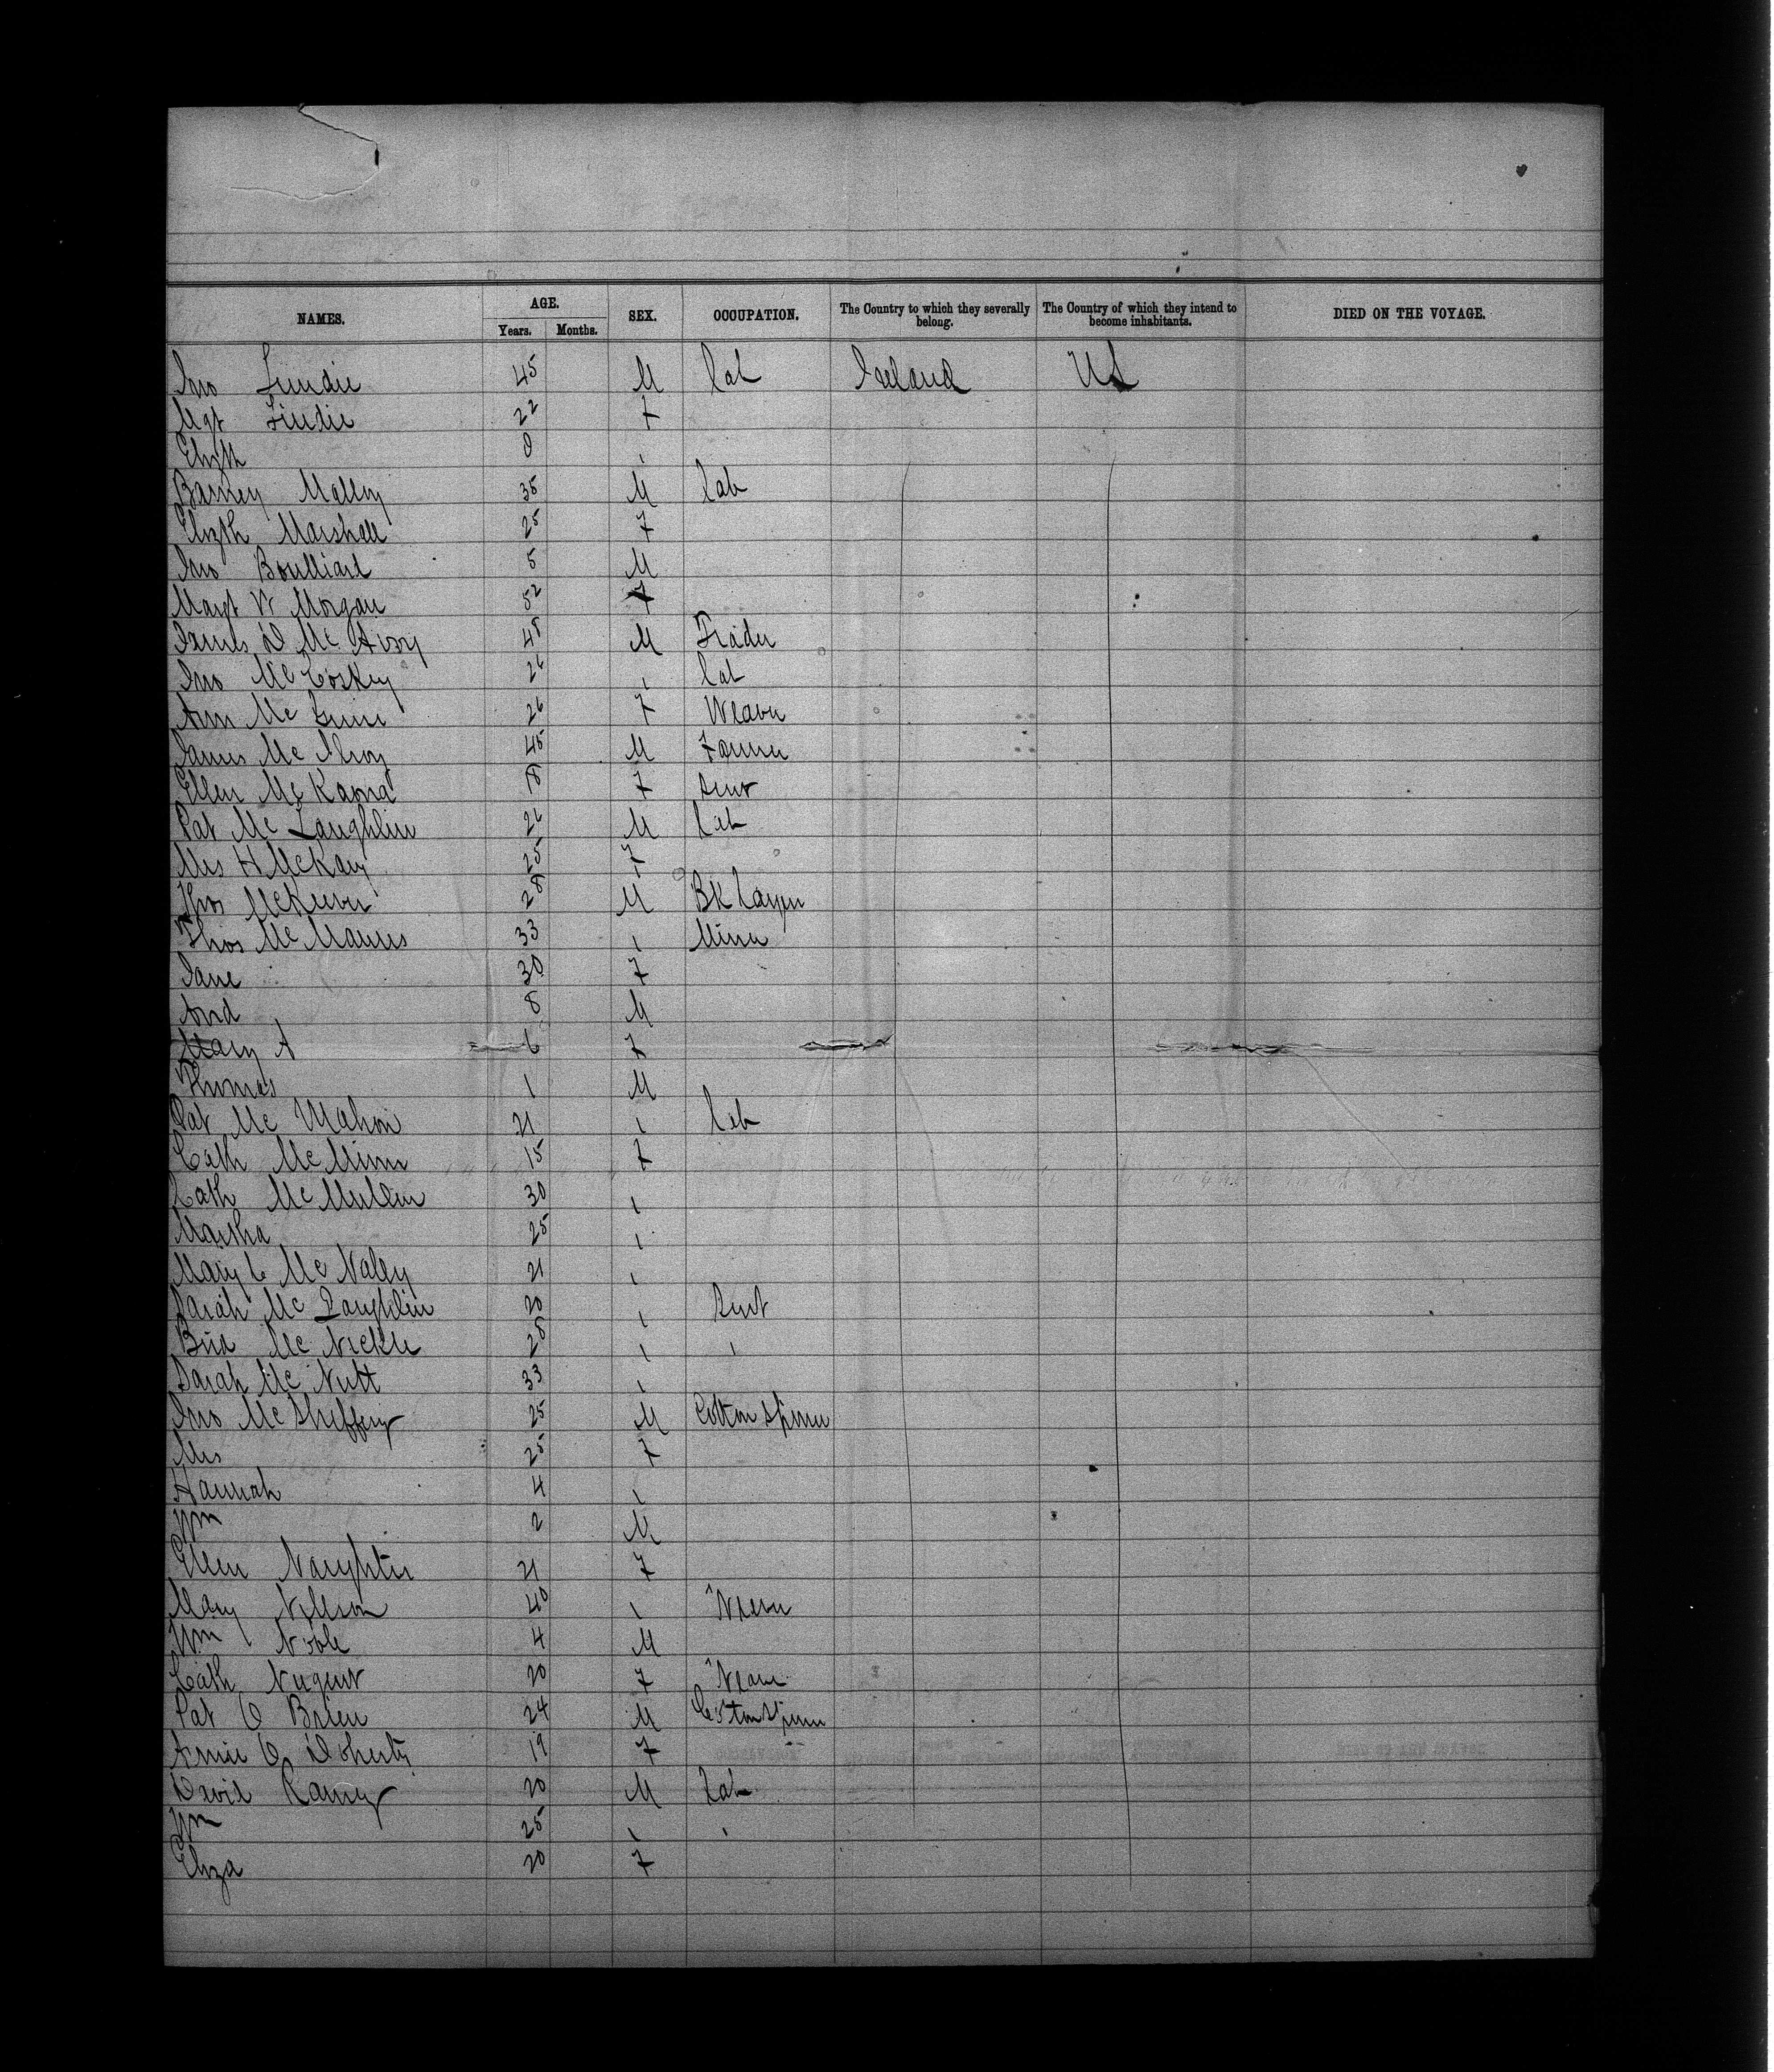 NAMES. AGE. SEX. OCCUPATION. The Country to which they severally belong. The Country of which they intend to become inhabitants. DIED ON THE VOYAGE.
Years. Months.
Jno Lundie 45 M Lab Ireland US
Mgt Lindie 22 F
Elizth 8 "
Barney Malloy 35 M Lab
Elizth Marshall 25 F
Jno Boulliard 5 M
Margt W Morgan 52 F
James D Mc Avoy 45 M Trader
Jno McCoskey 26 " Lab
Ann Mc 26 F Weaver
James Mc Ilroy 45 M Farmer
Ellen Mc 18 F Servt
Pat Mc Laughlin 26 M Lab
Mrs H McKay 25 F
Thos McKeever 28 M Bk Layer
Thos Mc Manus 33 " Miner
Jane 30 F
And 8 M
Mary A 6 F
Thomas 1 M
Pat Mc Mahon 21 " Lab
Cath Mc Minn 15 F
Cath Mc Mullin 30 "
Martha 25 "
Mary C Mc Nally 21 "
Sarah Mc Laughlin 20 " Servt
Brid Mc Nickle 28 " "
Sarah Mc Nutt 33 "
Jno Mc Sheffery 25 M Cotton Spinner
Mrs 25 F
Hannah 4 "
Wm 2 M
Ellen Naughter 21 F
Mary Nillson 40 " Weaver
Wm Noble 4 M
Cath Nugent 20 F Weaver
Pat O Brien 24 M Cotton Spinner
Annie O Doherty 19 F
David Ramey 20 M Lab
Wm 25 " "
Eliza 20 F